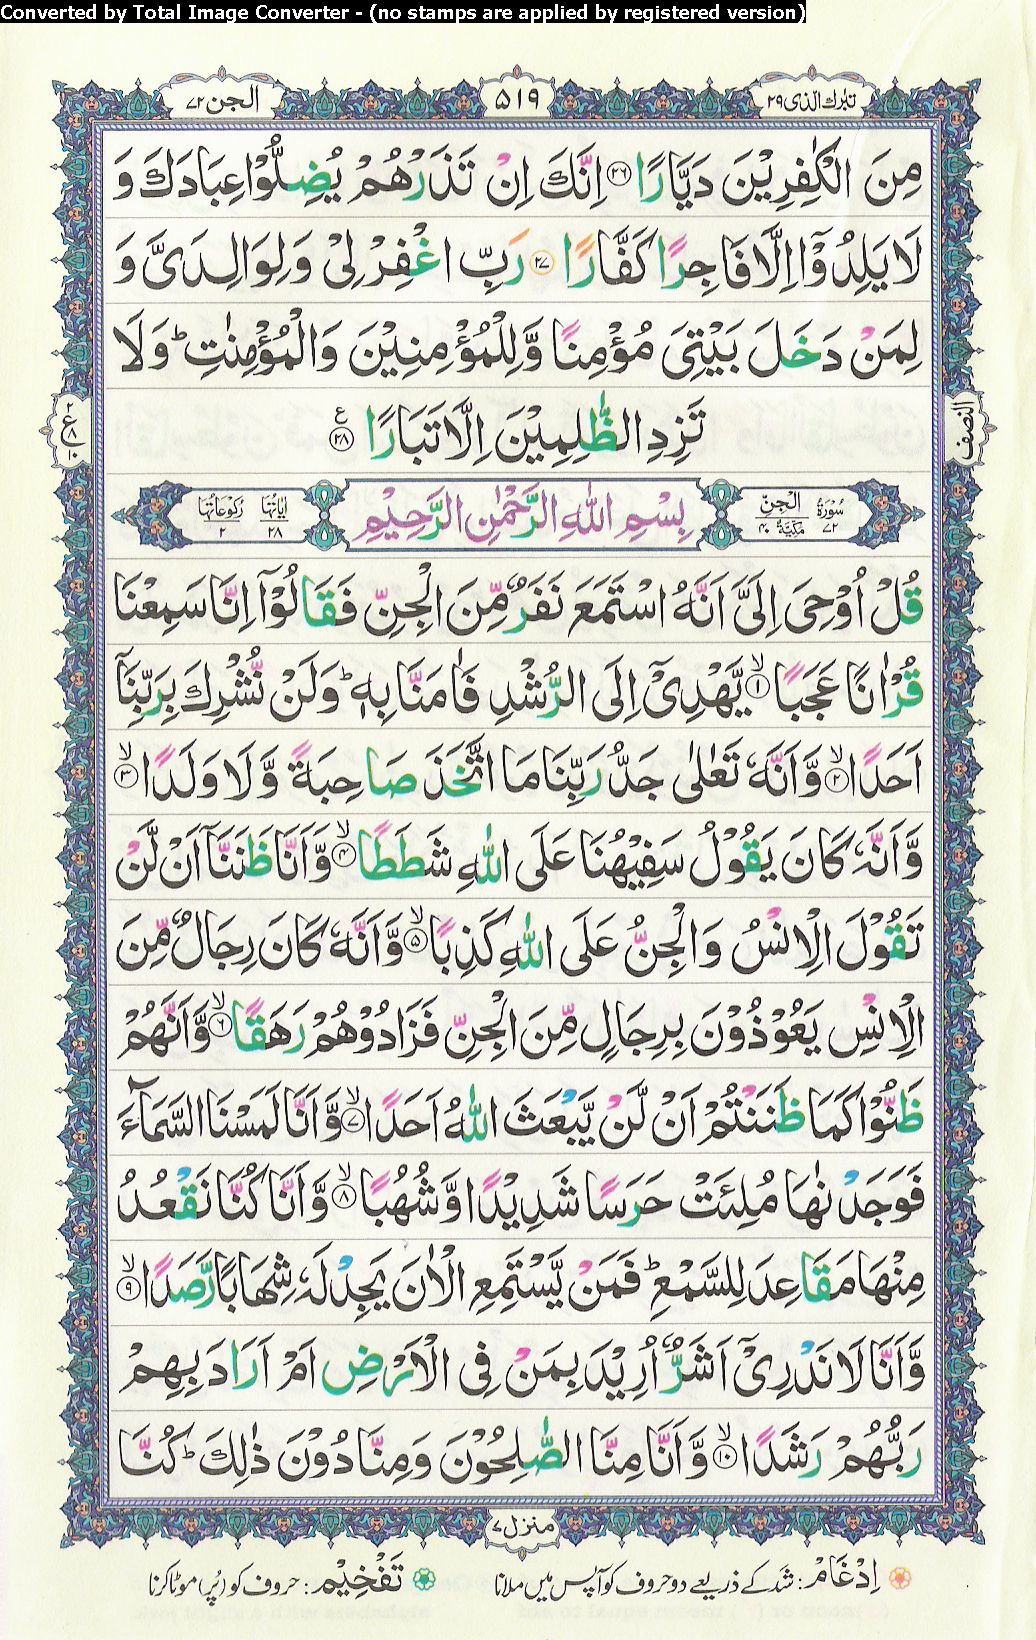 Converted by Total Image Converter - (no stamps are applied by registered version)
تبٰرك الذی ٢٩
٥١٩
الجن ٧٢
مِنَ الْكٰفِرِيْنَ دَيَّارًا ﴿٢٦﴾ اِنَّكَ اِنْ تَذَرْهُمْ يُضِلُّوْا عِبَادَكَ وَ
لَا يَلِدُوْۤا اِلَّا فَاجِرًا كَفَّارًا ﴿٢٧﴾ رَبِّ اغْفِرْ لِيْ وَ لِوَالِدَيَّ وَ
لِمَنْ دَخَلَ بَيْتِيَ مُؤْمِنًا وَّ لِلْمُؤْمِنِيْنَ وَ الْمُؤْمِنٰتِ ؕ وَ لَا
تَزِدِ الظّٰلِمِيْنَ اِلَّا تَبَارًا ﴿٢٨﴾ ع
النصف
٢ ع ٨ ١٠
سُوْرَةُ الْجِنِّ مَكِّيَّةٌ ٧٢ ٤٠
بِسْمِ اللّٰهِ الرَّحْمٰنِ الرَّحِيْمِ
اٰيَاتُهَا ٢٨ رُكُوْعَاتُهَا ٢
قُلْ اُوْحِيَ اِلَيَّ اَنَّهُ اسْتَمَعَ نَفَرٌ مِّنَ الْجِنِّ فَقَالُوْۤا اِنَّا سَمِعْنَا
قُرْاٰنًا عَجَبًا ۙ﴿١﴾ يَّهْدِيْۤ اِلَى الرُّشْدِ فَاٰمَنَّا بِهٖ ؕ وَ لَنْ نُّشْرِكَ بِرَبِّنَاۤ
اَحَدًا ۙ﴿٢﴾ وَّ اَنَّهٗ تَعٰلٰى جَدُّ رَبِّنَا مَا اتَّخَذَ صَاحِبَةً وَّ لَا وَلَدًا ۙ﴿٣﴾
وَّ اَنَّهٗ كَانَ يَقُوْلُ سَفِيْهُنَا عَلَى اللّٰهِ شَطَطًا ۙ﴿٤﴾ وَّ اَنَّا ظَنَنَّاۤ اَنْ لَّنْ
تَقُوْلَ الْاِنْسُ وَ الْجِنُّ عَلَى اللّٰهِ كَذِبًا ۙ﴿٥﴾ وَّ اَنَّهٗ كَانَ رِجَالٌ مِّنَ
الْاِنْسِ يَعُوْذُوْنَ بِرِجَالٍ مِّنَ الْجِنِّ فَزَادُوْهُمْ رَهَقًا ۙ﴿٦﴾ وَّ اَنَّهُمْ
ظَنُّوْا كَمَا ظَنَنْتُمْ اَنْ لَّنْ يَّبْعَثَ اللّٰهُ اَحَدًا ۙ﴿٧﴾ وَّ اَنَّا لَمَسْنَا السَّمَآءَ
فَوَجَدْنٰهَا مُلِئَتْ حَرَسًا شَدِيْدًا وَّ شُهُبًا ۙ﴿٨﴾ وَّ اَنَّا كُنَّا نَقْعُدُ
مِنْهَا مَقَاعِدَ لِلسَّمْعِ ؕ فَمَنْ يَّسْتَمِعِ الْاٰنَ يَجِدْ لَهٗ شِهَابًا رَّصَدًا ۙ﴿٩﴾
وَّ اَنَّا لَا نَدْرِيْۤ اَشَرٌّ اُرِيْدَ بِمَنْ فِي الْاَرْضِ اَمْ اَرَادَ بِهِمْ
رَبُّهُمْ رَشَدًا ۙ﴿١٠﴾ وَّ اَنَّا مِنَّا الصّٰلِحُوْنَ وَ مِنَّا دُوْنَ ذٰلِكَ ؕ كُنَّا
منزل ٧
اِدْغَامْ: شد کے ذریعے دو حروف کو آپس میں ملانا تَفْخِیْم: حروف کو (پُر) موٹا کرنا